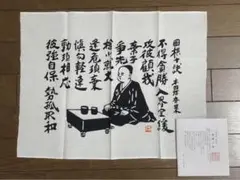 囲棋十訣
不得貪勝 入界宜緩
攻彼顧我
棄子
爭先
捨小就大
逢危須棄
慎勿軽速
動須相応
彼強自保 勢孤取和